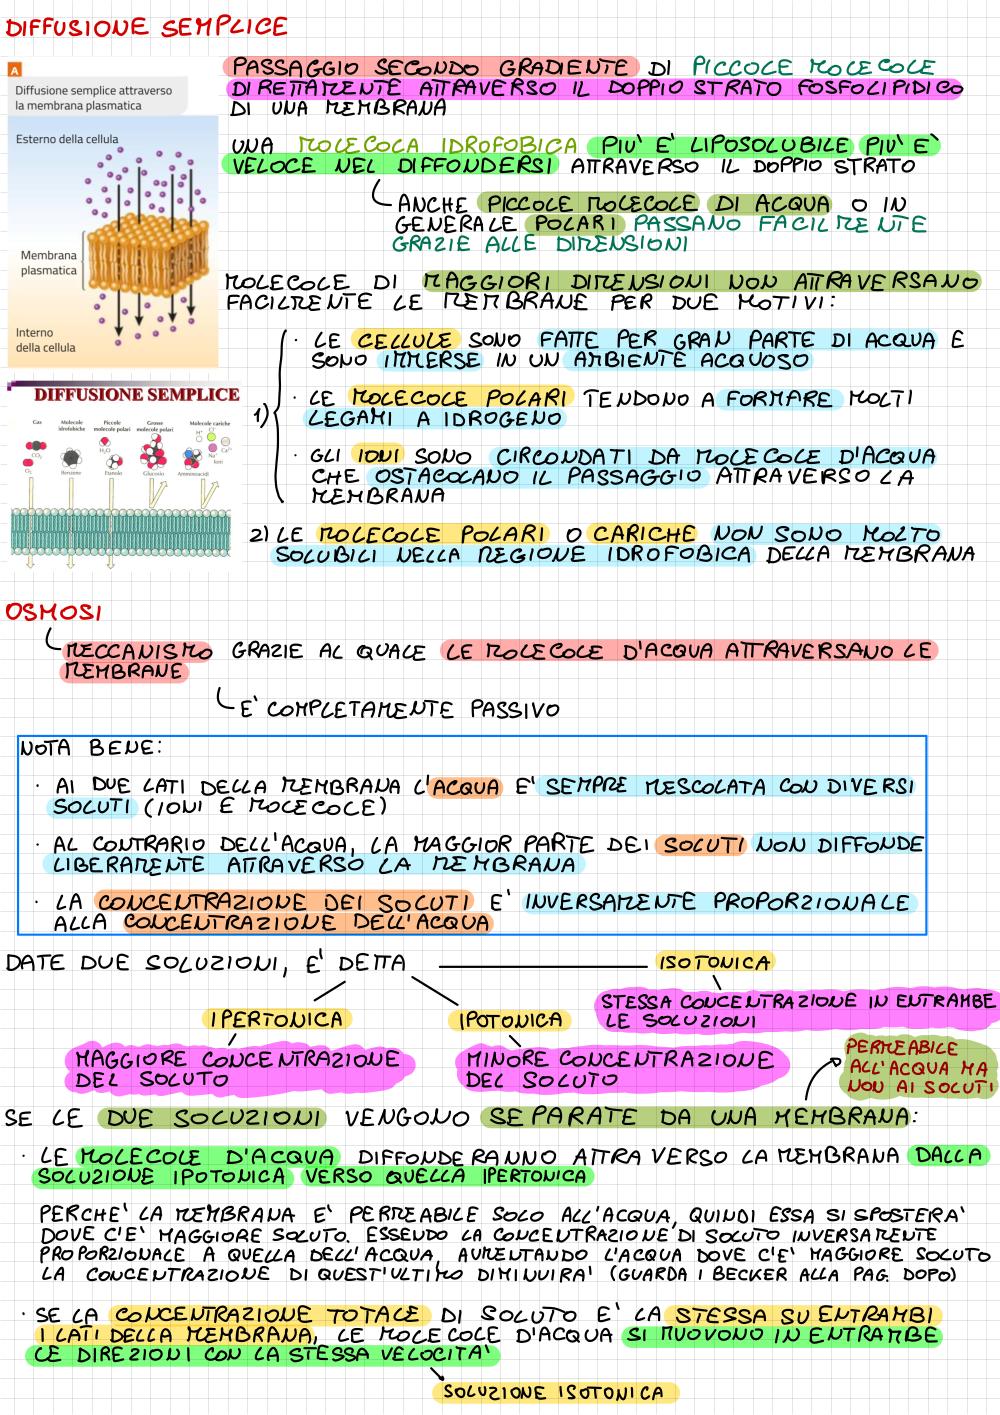 DIFFUSIONE SEMPLICE
A
Diffusione semplice attraverso
la membrana plasmatica
Esterno della cellula
Membrana
plasmatica
Interno
della cellula
PASSAGGIO SECONDO GRADIENTE DI PICCOLE MOLECOLE
DIRETTAMENTE ATTRAVERSO IL DOPPIO STRATO FOSFOLIPIDICO
DI UNA MEMBRANA
UNA MOLECOLA IDROFOBICA PIU' E' LIPOSOLUBILE PIU' E'
VELOCE NEL DIFFONDERSI ATTRAVERSO IL DOPPIO STRATO
ANCHE PICCOLE MOLECOLE DI ACQUA O IN
GENERALE POLARI PASSANO FACILMENTE
GRAZIE ALLE DIMENSIONI
MOLECOLE DI MAGGIORI DIMENSIONI NON ATTRAVERSANO
FACILMENTE LE MEMBRANE PER DUE MOTIVI:
1)
· LE CELLULE SONO FATTE PER GRAN PARTE DI ACQUA E
SONO IMMERSE IN UN AMBIENTE ACQUOSO
· LE MOLECOLE POLARI TENDONO A FORMARE MOLTI
LEGAMI A IDROGENO
· GLI IONI SONO CIRCONDATI DA MOLECOLE D'ACQUA
CHE OSTACOLANO IL PASSAGGIO ATTRAVERSO LA
MEMBRANA
2) LE MOLECOLE POLARI O CARICHE NON SONO MOLTO
SOLUBILI NELLA REGIONE IDROFOBICA DELLA MEMBRANA
DIFFUSIONE SEMPLICE
Gas
Molecole
idrofobiche
Piccole
molecole polari
Grosse
molecole polari
Molecole cariche
H⁺
Cl⁻
Ca²⁺
Na⁺
Ioni
H₂O
CO₂
O₂
Benzene
Etanolo
Glucosio
Amminoacidi
OSMOSI
MECCANISMO GRAZIE AL QUALE LE MOLECOLE D'ACQUA ATTRAVERSANO LE
MEMBRANE
E' COMPLETAMENTE PASSIVO
NOTA BENE:
· AI DUE LATI DELLA MEMBRANA L'ACQUA E' SEMPRE MESCOLATA CON DIVERSI
SOLUTI (IONI E MOLECOLE)
· AL CONTRARIO DELL'ACQUA, LA MAGGIOR PARTE DEI SOLUTI NON DIFFONDE
LIBERAMENTE ATTRAVERSO LA MEMBRANA
· LA CONCENTRAZIONE DEI SOLUTI E' INVERSAMENTE PROPORZIONALE
ALLA CONCENTRAZIONE DELL'ACQUA
DATE DUE SOLUZIONI, E' DETTA
ISOTONICA
STESSA CONCENTRAZIONE IN ENTRAMBE
LE SOLUZIONI
IPERTONICA
IPOTONICA
MAGGIORE CONCENTRAZIONE
DEL SOLUTO
MINORE CONCENTRAZIONE
DEL SOLUTO
PERMEABILE
ALL'ACQUA MA
NON AI SOLUTI
SE LE DUE SOLUZIONI VENGONO SEPARATE DA UNA MEMBRANA:
· LE MOLECOLE D'ACQUA DIFFONDERANNO ATTRAVERSO LA MEMBRANA DALLA
SOLUZIONE IPOTONICA VERSO QUELLA IPERTONICA
PERCHE' LA MEMBRANA E' PERMEABILE SOLO ALL'ACQUA, QUINDI ESSA SI SPOSTERA'
DOVE C'E' MAGGIORE SOLUTO. ESSENDO LA CONCENTRAZIONE DI SOLUTO INVERSAMENTE
PROPORZIONALE A QUELLA DELL'ACQUA, AUMENTANDO L'ACQUA DOVE C'E' MAGGIORE SOLUTO
LA CONCENTRAZIONE DI QUEST'ULTIMO DIMINUIRA' (GUARDA I BECKER ALLA PAG. DOPO)
· SE LA CONCENTRAZIONE TOTALE DI SOLUTO E' LA STESSA SU ENTRAMBI
I LATI DELLA MEMBRANA, LE MOLECOLE D'ACQUA SI MUOVONO IN ENTRAMBE
LE DIREZIONI CON LA STESSA VELOCITA'
SOLUZIONE ISOTONICA